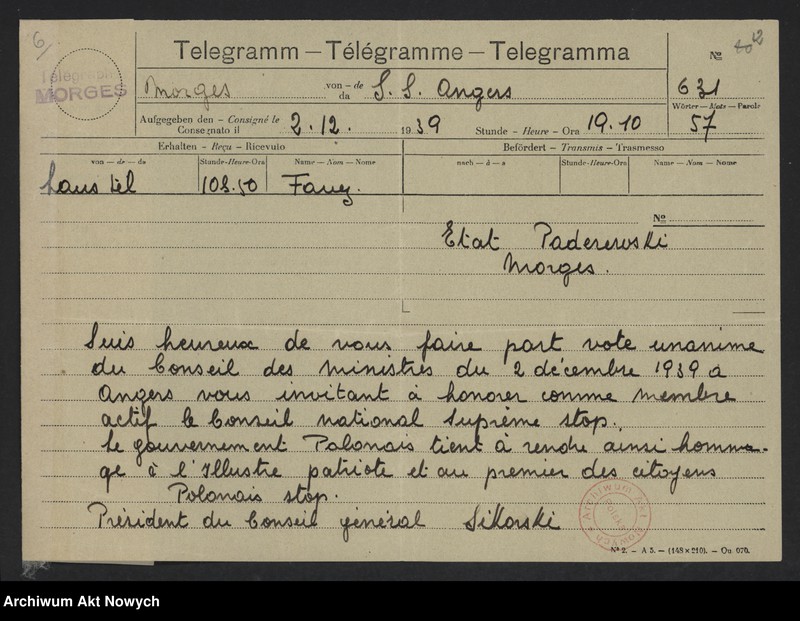 6/
Telegramm — Télégramme — Telegramma
№ 12
Telegraph
MORGES
Morges von - de da S. S. Angers 631
Wörter — Mots — Parole
Aufgegeben den - Consigné le Consegnato il 2.12. 1939 Stunde - Heure - Ora 19.10 57
Erhalten - Reçu - Ricevuto Befördert - Transmis - Trasmesso
von — de — da Stunde-Heure-Ora Name — Nom — Nome nach — à — a Stunde-Heure-Ora Name — Nom — Nome
Laus tél
№
Etat Paderewski
Morges.
Suis heureux de vous faire part vote unanime
du Conseil des ministres du 2 décembre 1939 a
Angers vous invitant à honorer comme membre
actif le Conseil national Suprême stop.
Le gouvernement Polonais tient à rendre ainsi homma-
ge à l'Illustre patriote et au premier des citoyens
Polonais stop.
Président du Conseil général Sikorski
Archiwum Akt Nowych
№ 2. — A 5. — (148×210). — Qu 070.
Archiwum Akt Nowych